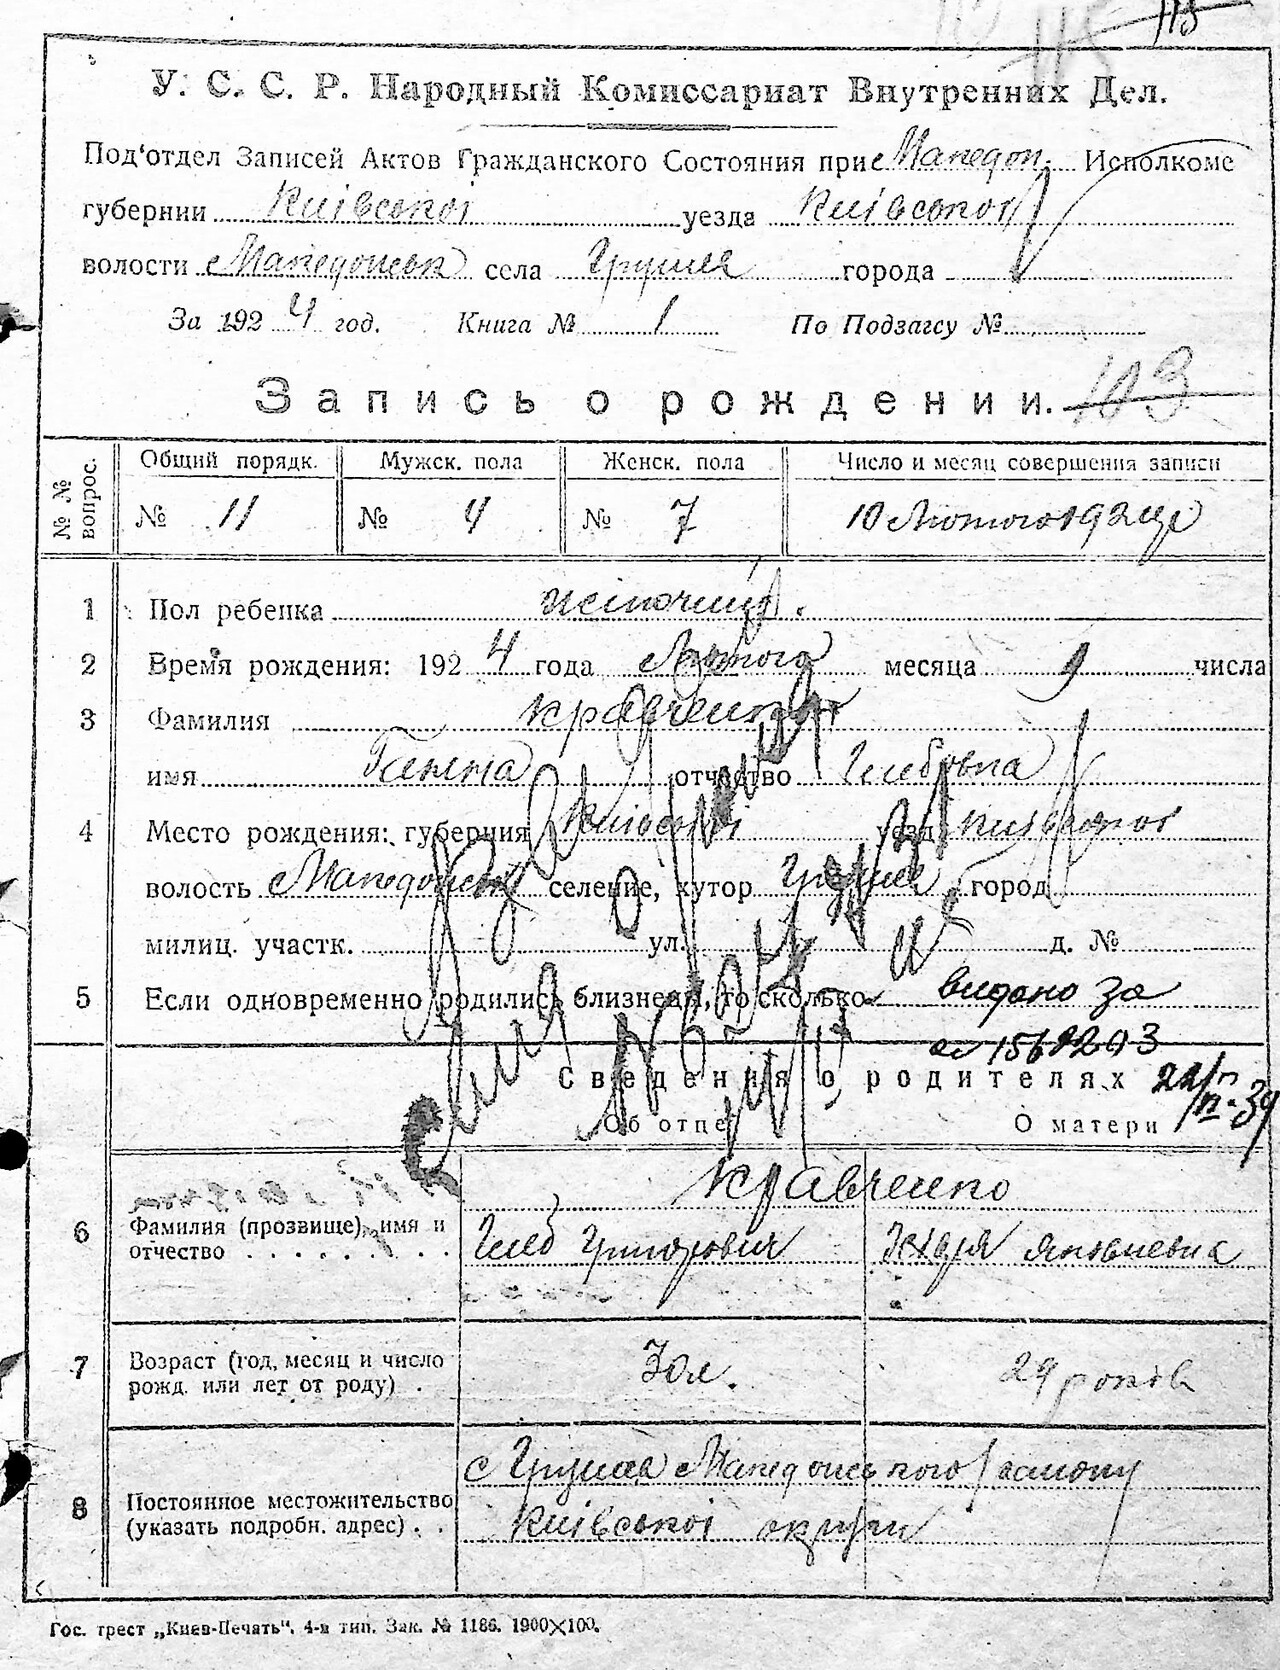 115
У. С. С. Р. Народный Комиссариат Внутренних Дел.
Под'отдел Записей Актов Гражданского Состояния при Македон. Исполкоме
губернии Київської уезда Київської
волости Македонськ села Грушев города
За 1924 год. Книга № 1 По Подзагсу №
Запись о рождении. 103
№ № вопрос. Общий порядк. Мужск. пола Женск. пола Число и месяц совершения записи
№ 11 № 4 № 7 10 Лютого 1924 р
1 Пол ребенка жіночий.
2 Время рождения: 1924 года Лютого месяца 9 числа
3 Фамилия Кравченко
имя Ганна отчество Глебовна
4 Место рождения: губерния Київської уезд Київської
волость Македонськ селение, хутор Грушев город
милиц. участк. ул. д. №
5 Если одновременно родились близнецы, то сколько видано за
1568203
Сведения о родителях
Об отце О матери
Кравченко
6 Фамилия (прозвище), имя и отчество Глеб Григорович Яковлевна
7 Возраст (год, месяц и число рожд. или лет от роду) 30 л. 29 років
8 Постоянное местожительство (указать подробн. адрес) с Грушев Македонського району
Київської округи
Гос. трест „Киев-Печать“. 4-я тип. Зак. № 1186. 1900×100.